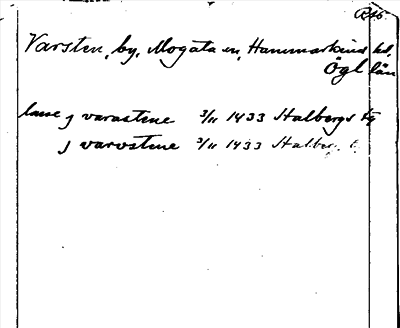 Varsten, by, Mogata sn, Hammarkinds hd,
Ögl län
lasse j varastene 3/11 1433 Stalbergs
j varostene 3/11 1433